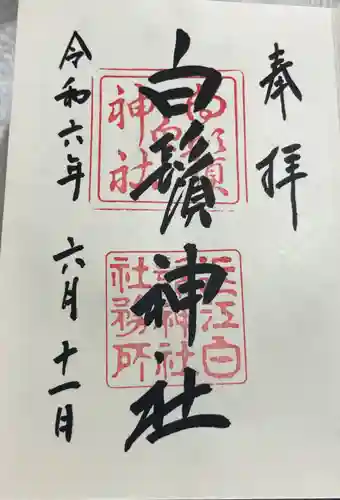 奉拝
白鬚神社
白鬚神社
近江白鬚神社社務所
令和六年 六月十一日